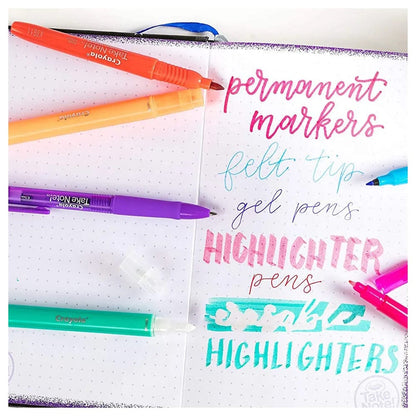 permanent
markers
felt tip
gel pens
HIGHLIGHTER
pens
HIGHLIGHTERS
Crayola
Take Note!
Crayola
Take Note!
Crayola
Take